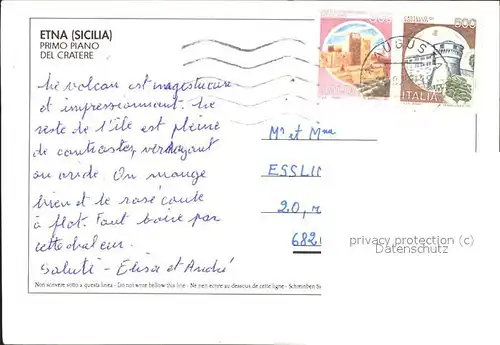 ETNA (SICILIA)
PRIMO PIANO
DEL CRATERE
500
ITALIA
AUGUS
Le volcan est majestueuse
et impressionnant. Le
reste de l'île est pleine
de contrastes, verdoyant
ou aride. On mange
bien et le rosé coule
à flot. Faut boire par
cette chaleur.
Saluti - Elisa et André
Mr et Mme
ESSLI
20, r
682
privacy protection (c)
Datenschutz
Non scrivere sotto a questa linea - Do not write bellow this line - Ne rien ecrire au-dessous de cette ligne - Schreiben Sie